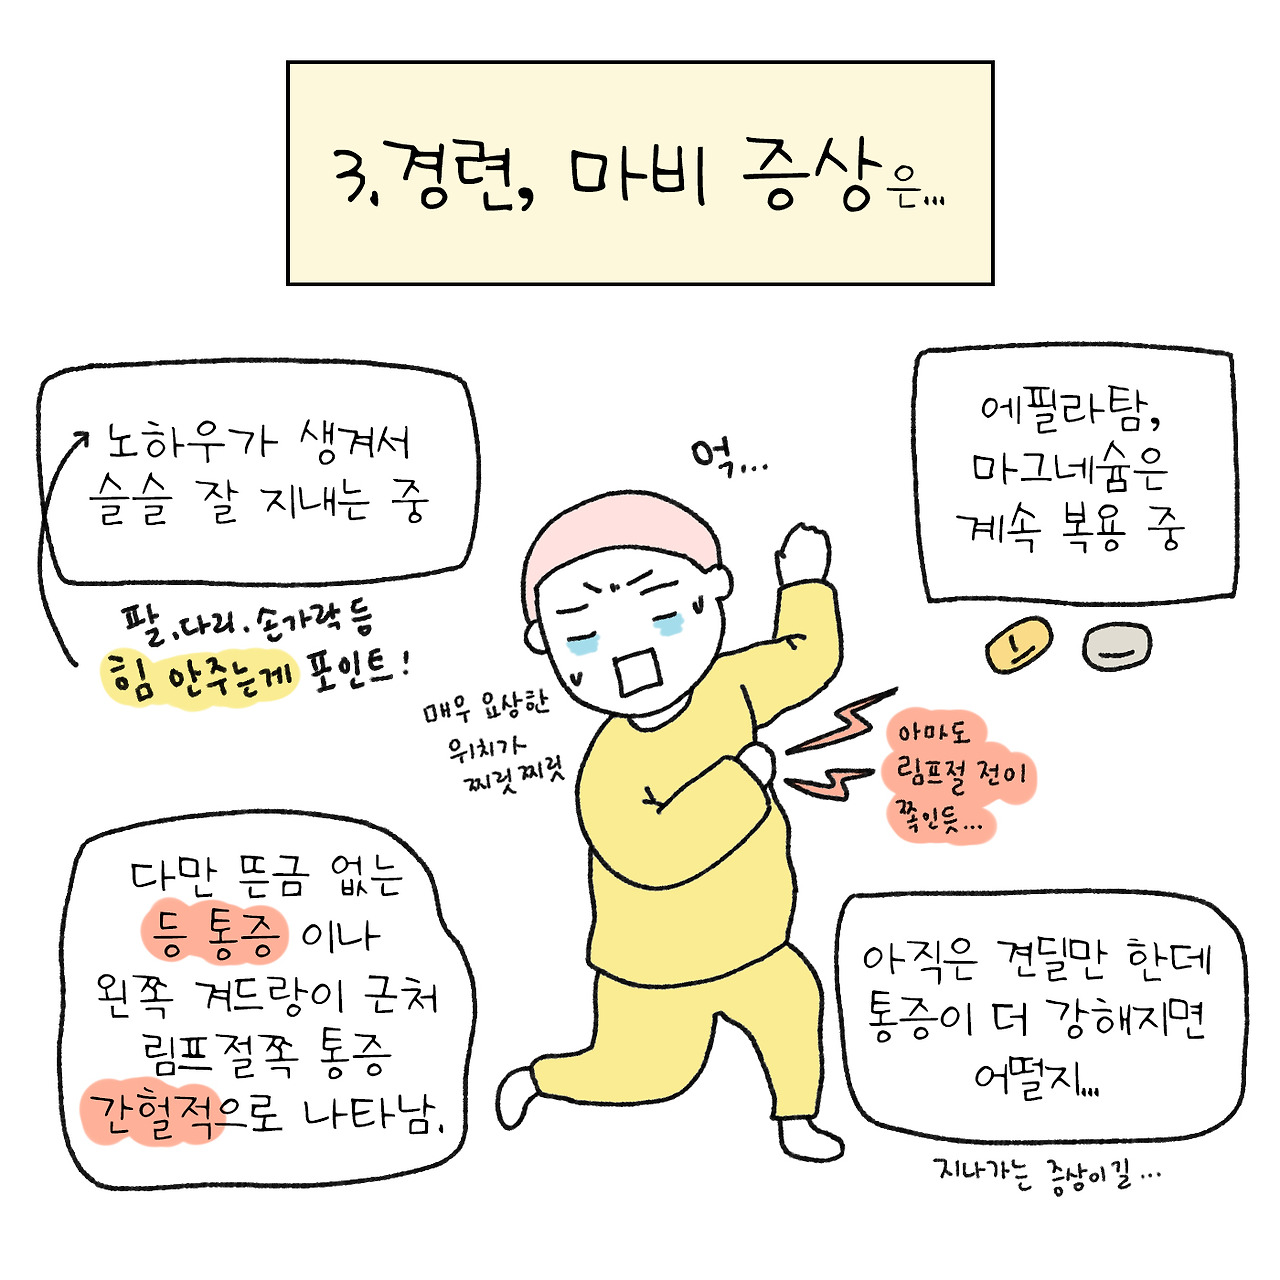 3. 경련, 마비 증상은...
노하우가 생겨서
슬슬 잘 지내는 중
팔, 다리, 손가락 등
힘 안주는게 포인트!
에필라탐,
마그네슘은
계속 복용 중
억...
매우 요상한
위치가
찌릿찌릿
아마도
림프절 전이
쪽인듯...
다만 뜬금 없는
등 통증 이나
왼쪽 겨드랑이 근처
림프절쪽 통증
간헐적으로 나타남.
아직은 견딜만 한데
통증이 더 강해지면
어떨지...
지나가는 증상이길...